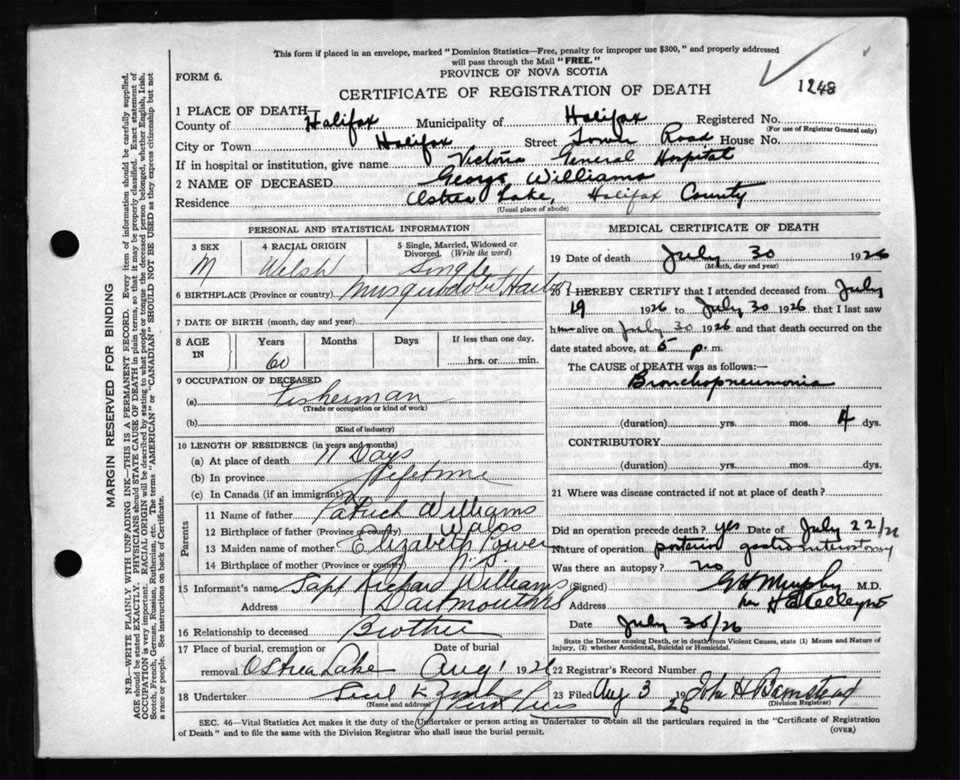 This form if placed in an envelope, marked "Dominion Statistics—Free, penalty for improper use $300," and properly addressed
will pass through the Mail "FREE."
FORM 6.
PROVINCE OF NOVA SCOTIA
1248
CERTIFICATE OF REGISTRATION OF DEATH
1 PLACE OF DEATH—
County of Halifax Municipality of Halifax Registered No.
(For use of Registrar General only)
City or Town Halifax Street Tower Road House No.
If in hospital or institution, give name Victoria General Hospital
2 NAME OF DECEASED George Williams
Residence Ostrea Lake, Halifax County
(Usual place of abode)
PERSONAL AND STATISTICAL INFORMATION
3 SEX M
4 RACIAL ORIGIN Welsh
5 Single, Married, Widowed or Divorced. (Write the word) Single
6 BIRTHPLACE (Province or country) Musquodoboit Harbor
7 DATE OF BIRTH (month, day and year)
8 AGE IN Years Months Days If less than one day,
60 hrs. or min.
9 OCCUPATION OF DECEASED
(a) Fisherman
(Trade or occupation or kind of work)
(b)
(Kind of industry)
10 LENGTH OF RESIDENCE (in years and months)
(a) At place of death 11 Days
(b) In province Lifetime
(c) In Canada (if an immigrant)
Parents
11 Name of father Patrick Williams
12 Birthplace of father (Province or country) Wales
13 Maiden name of mother Elizabeth Power
14 Birthplace of mother (Province or country) N.S.
15 Informant's name Capt Richard Williams
Address Dartmouth NS
16 Relationship to deceased Brother
17 Place of burial, cremation or removal Ostrea Lake
Date of burial Aug 1 1926
18 Undertaker
(Name and address)
MEDICAL CERTIFICATE OF DEATH
19 Date of death July 30 1926
(Month, day and year)
20 I HEREBY CERTIFY that I attended deceased from July
19 1926 to July 30 1926 that I last saw
him alive on July 30 1926 and that death occurred on
date stated above, at 5 p.m.
The CAUSE of DEATH was as follows:—
Bronchopneumonia
(duration) yrs. mos. 4 days.
CONTRIBUTORY
(duration) yrs. mos. days.
21 Where was disease contracted if not at place of death?
Did an operation precede death? yes Date of July 22/26
Nature of operation posterior gastro enterostomy
Was there an autopsy? no
(Signed) G H Murphy M.D.
Address
Date July 30/26
State the Disease causing Death, or in death from Violent Causes, state (1) Means and Nature of
Injury, (2) whether Accidental, Suicidal or Homicidal.
22 Registrar's Record Number
23 Filed Aug 3 1926 John H Barnstead
(Division Registrar)
SEC. 46—Vital Statistics Act makes it the duty of the Undertaker or person acting as Undertaker to obtain all the particulars required in the "Certificate of Registration
of Death" and to file the same with the Division Registrar who shall issue the burial permit.
(OVER)
MARGIN RESERVED FOR BINDING
N.B.—WRITE PLAINLY WITH UNFADING INK—THIS IS A PERMANENT RECORD. Every item of information should be carefully supplied.
AGE should be stated EXACTLY. PHYSICIANS should STATE CAUSE OF DEATH in plain terms, so that it may be properly classified. Exact statement of
OCCUPATION is very important. RACIAL ORIGIN will be described by stating to what people or tongue the deceased person belonged, whether English, Irish,
Scotch, French, German, Russian, Ruthenian, etc. The terms "AMERICAN" or "CANADIAN" SHOULD NOT BE USED as they express citizenship but not
a race or people. See instructions on back of Certificate.